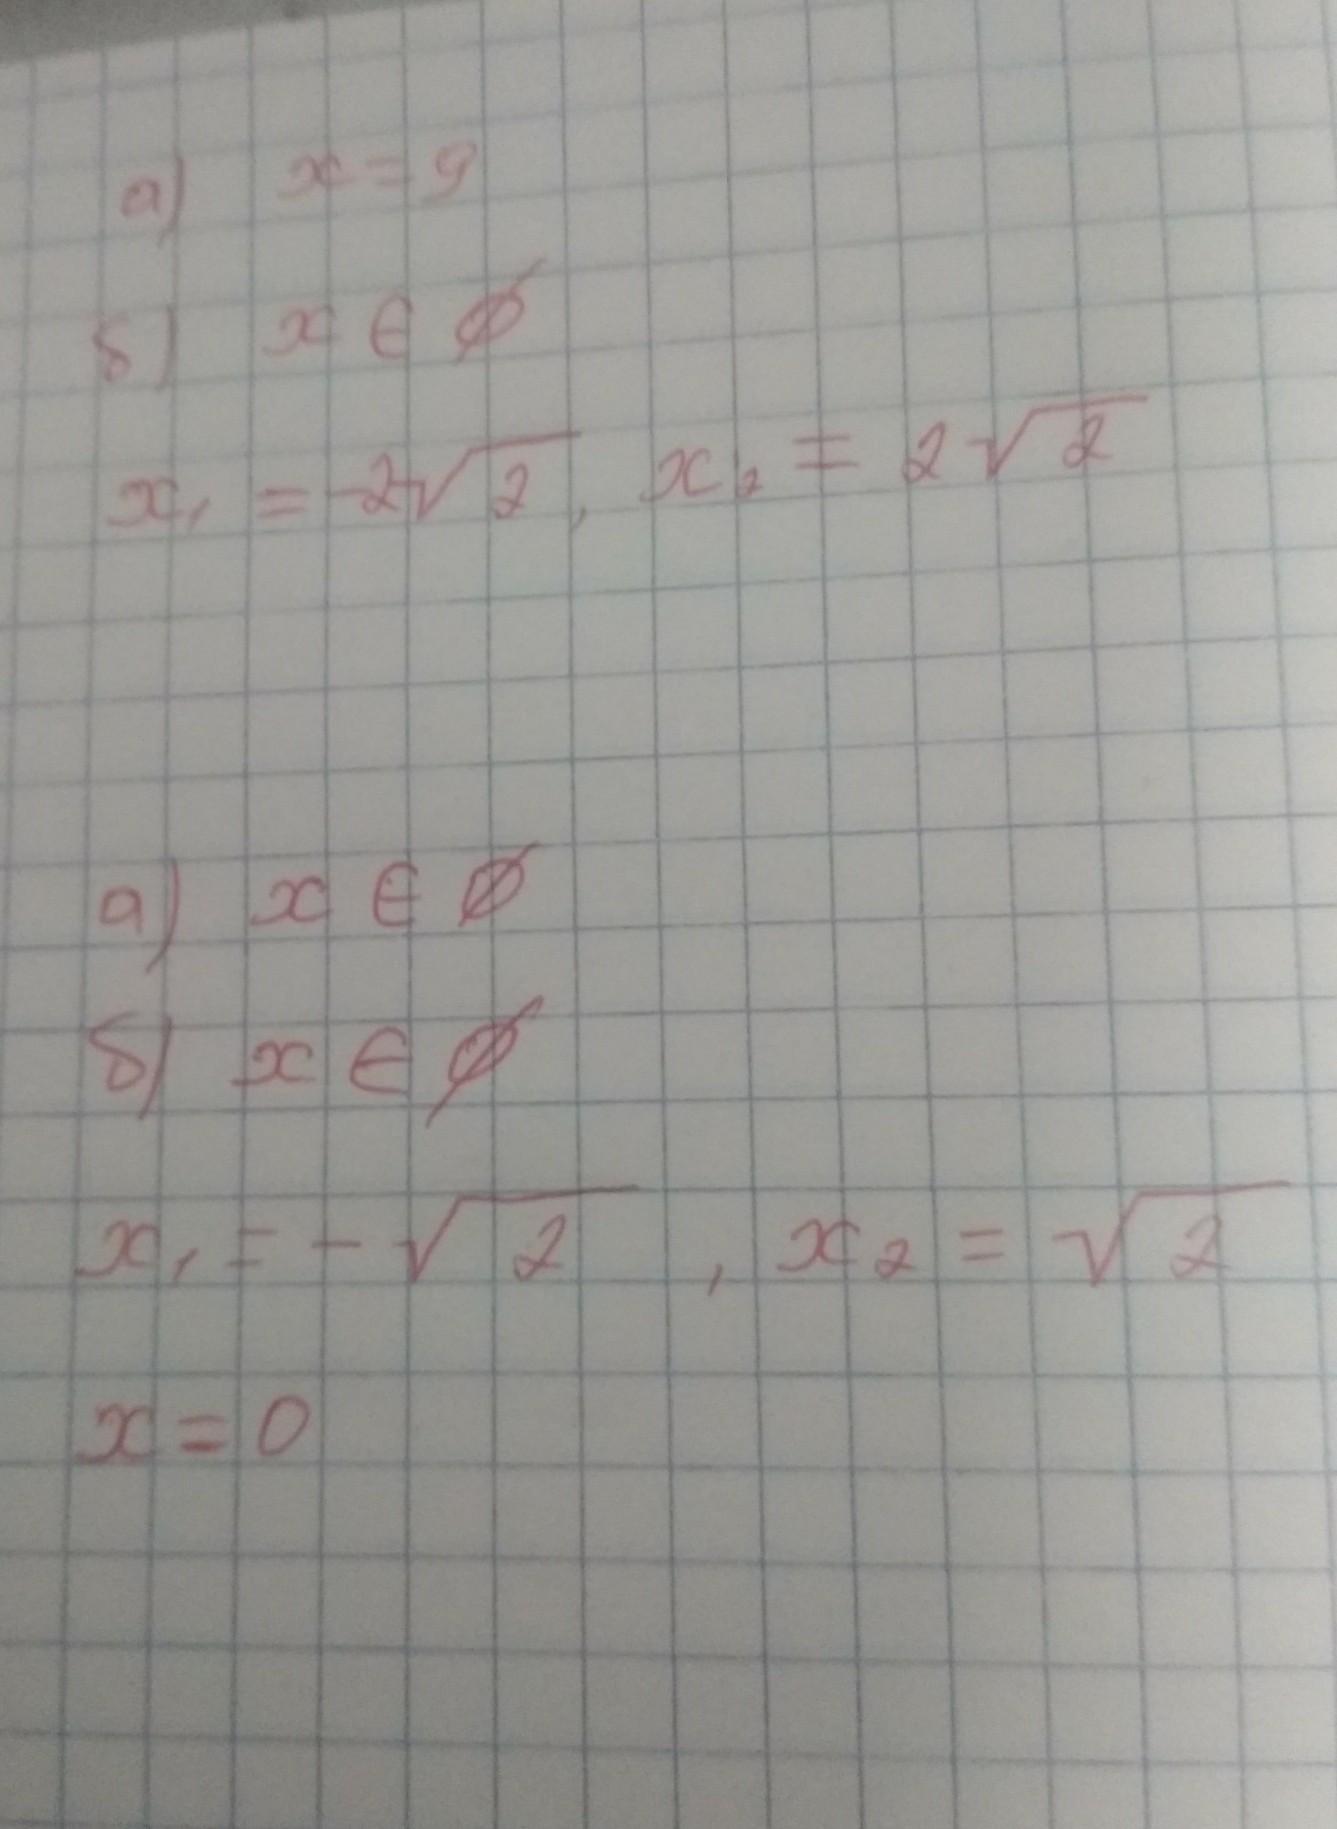 а) x = 9
б) x ∈ ∅
x₁ = -2√2, x₂ = 2√2
а) x ∈ ∅
б) x ∈ ∅
x₁ = -√2, x₂ = √2
x = 0